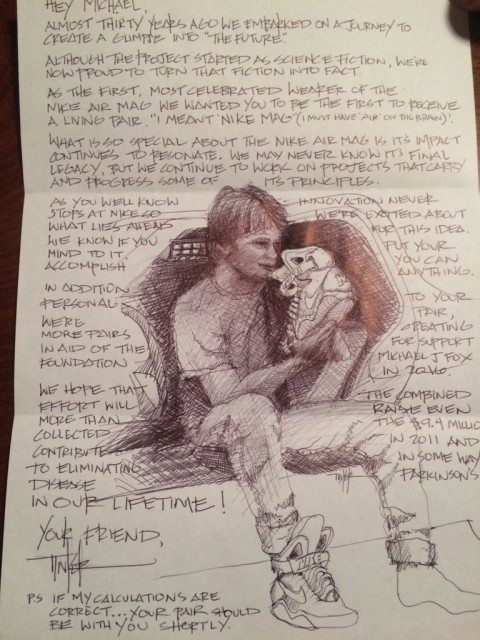 HEY MICHAEL,
ALMOST THIRTY YEARS AGO WE EMBARKED ON A JOURNEY TO
CREATE A GLIMPSE INTO "THE FUTURE."
ALTHOUGH THE PROJECT STARTED AS SCIENCE FICTION, WE'RE
NOW PROUD TO TURN THAT FICTION INTO FACT.
AS THE FIRST, MOST CELEBRATED WEARER OF THE
NIKE AIR MAG WE WANTED YOU TO BE THE FIRST TO RECEIVE
A LIVING PAIR. "I MEANT 'NIKE MAG' (I MUST HAVE 'AIR' ON THE BRAIN)!
WHAT IS SO SPECIAL ABOUT THE NIKE AIR MAG IS ITS IMPACT
CONTINUES TO RESONATE. WE MAY NEVER KNOW ITS FINAL
LEGACY, BUT WE CONTINUE TO WORK ON PROJECTS THAT CARRY
AND PROGRESS SOME OF ITS PRINCIPLES.
AS YOU WELL KNOW INNOVATION NEVER
STOPS AT NIKE SO WE'RE EXCITED ABOUT
WHAT LIES AHEAD FOR THIS IDEA.
WE KNOW IF YOU PUT YOUR
MIND TO IT, YOU CAN
ACCOMPLISH ANYTHING.
IN ADDITION TO YOUR
PERSONAL PAIR,
WE'RE CREATING
MORE PAIRS FOR SUPPORT
IN AID OF THE MICHAEL J FOX
FOUNDATION IN 2016.
WE HOPE THAT THE COMBINED
EFFORT WILL RAISE EVEN
MORE THAN THE $9.4 MILLIO
COLLECTED IN 2011 AND
CONTRIBUTE IN SOME WAY
TO ELIMINATING PARKINSON'S
DISEASE
IN OUR LIFETIME!
YOUR FRIEND,
TINKER
PS IF MY CALCULATIONS ARE
CORRECT... YOUR PAIR SHOULD
BE WITH YOU SHORTLY.